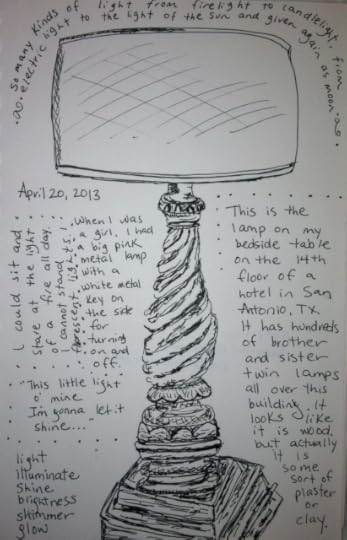 So many kinds of light from firelight to candlelight, from
electric light to the light of the sun and given again as moon
April 20, 2013
I could sit and
stare at the light
of a fire all day.
I cannot stand
florescent lights.
When I was
a girl, I had
a big pink
metal lamp
with a
white metal
key on
the side
for
turning
on and
off.
"This little light
o' mine
I'm gonna let it
shine..."
light
illuminate
shine
brightness
shimmer
glow
This is the
lamp on my
bedside table
on the 14th
floor of a
hotel in San
Antonio, TX.
It has hundreds
of brother
and sister
twin lamps
all over this
building. It
looks like
it is wood,
but actually
it is
some
sort of
plaster
or
clay.